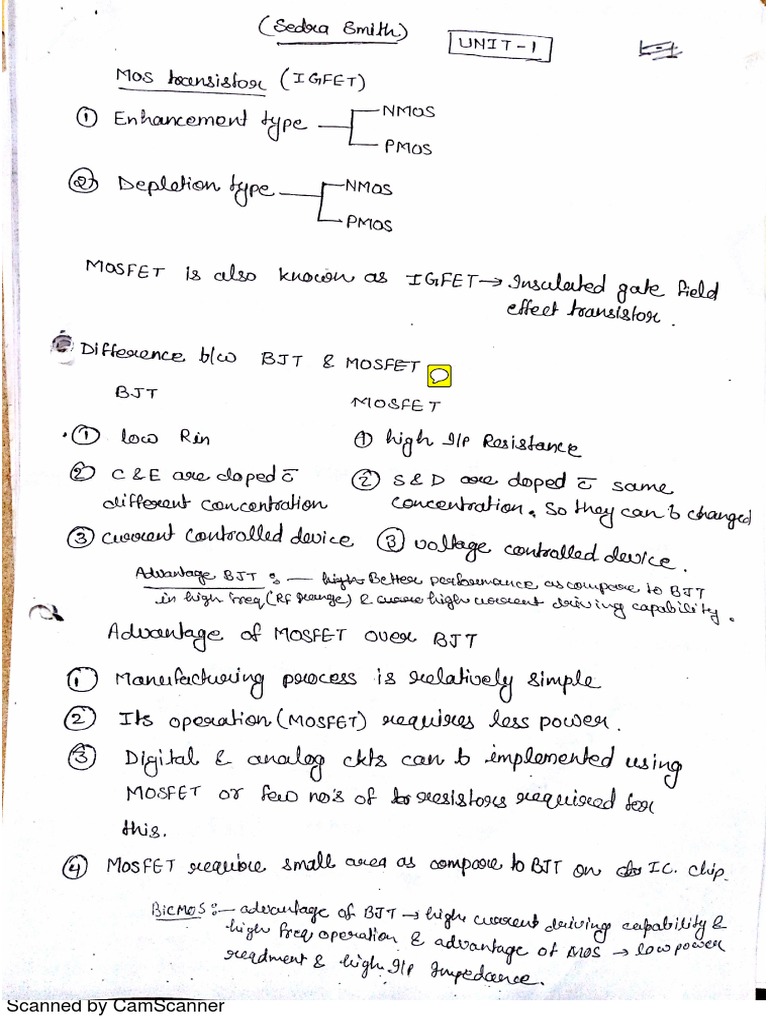 (Sedra Smith)
UNIT-1
L-1
MOS transistor (IGFET)
① Enhancement type NMOS
PMOS
② Depletion type NMOS
PMOS
MOSFET is also known as IGFET → Insulated gate field
effect transistor.
Difference b/w BJT & MOSFET
BJT
MOSFET
① low Rin
① high I/P Resistance
② C & E are doped c̄
different concentration
② S & D are doped c̄ same
concentration. So they can b changed
③ current controlled device
③ voltage controlled device.
Advantage BJT :— Better performance as compare to BJT
in high freq (RF range) & high current driving capability.
Advantage of MOSFET over BJT
① Manufacturing process is relatively simple
② Its operation (MOSFET) requires less power.
③ Digital & analog ckts can b implemented using
MOSFET or few no's of resistors required for
this.
④ MOSFET require small area as compare to BJT on IC. chip.
BiCMOS :— advantage of BJT → high current driving capability &
high freq operation & advantage of MOS → low power
reqdment & high I/P Impedance.
Scanned by CamScanner